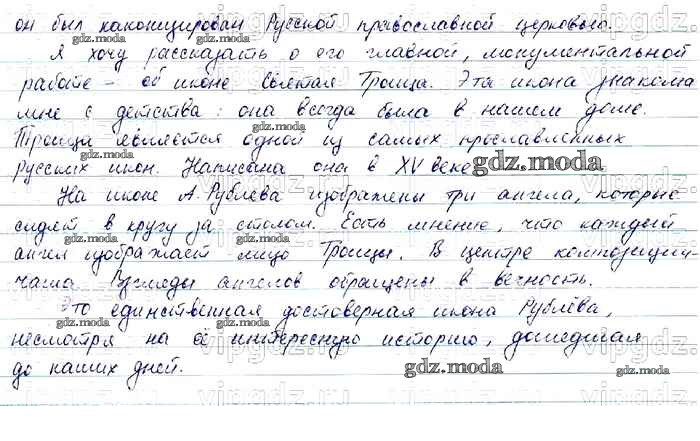 он был канонизирован Русской православной церковью.
Я хочу рассказать о его главной, монументальной
работе – об иконе Святая Троица. Эта икона знакома
мне с детства: она всегда была в нашем доме.
Троица является одной из самых прославленных
русских икон. Написана она в XV веке
На иконе А. Рублёва изображены три ангела, которые
сидят в кругу за столом. Есть мнение, что каждый
ангел изображает лицо Троицы. В центре композиции-
чаша Взгляды ангелов обращены в вечность.
Это единственная достоверная икона Рублёва,
несмотря на её интересную историю, дошедшая
до наших дней.
gdz.moda
vipgdz.ru